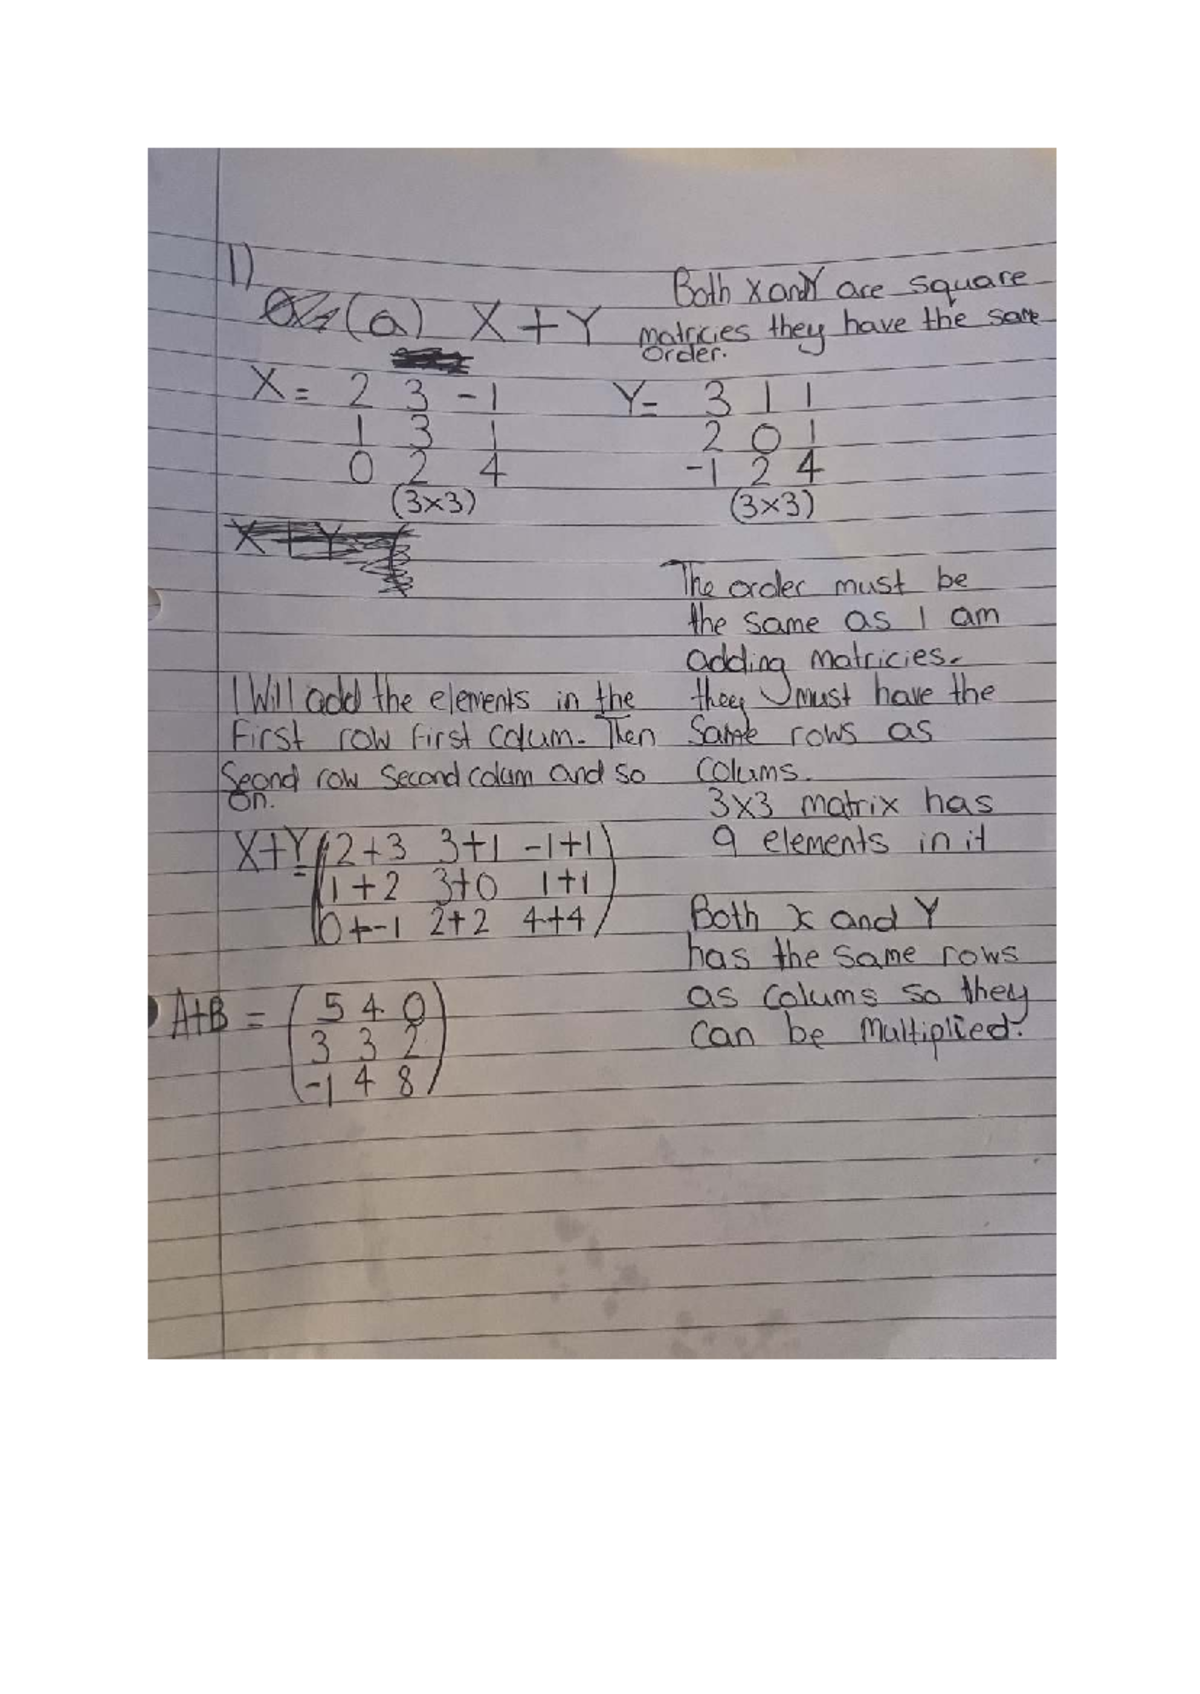 1)
(a) X + Y
Both X and Y are square
matricies they have the same
order.
X = 2 3 -1
1 3 1
0 2 4
(3x3)
Y= 3 1 1
2 0 1
-1 2 4
(3x3)
X + Y
The order must be
the same as I am
adding matricies.
they must have the
same rows as
colums.
3x3 matrix has
9 elements in it
I Will add the elements in the
First row first colum. Then
Seond row second colum and so
on.
X+Y = (2+3 3+1 -1+1)
1+2 3+0 1+1
0+-1 2+2 4+4
Both X and Y
has the same rows
as colums so they
can be multiplied.
A+B = (5 4 0)
3 3 2
-1 4 8